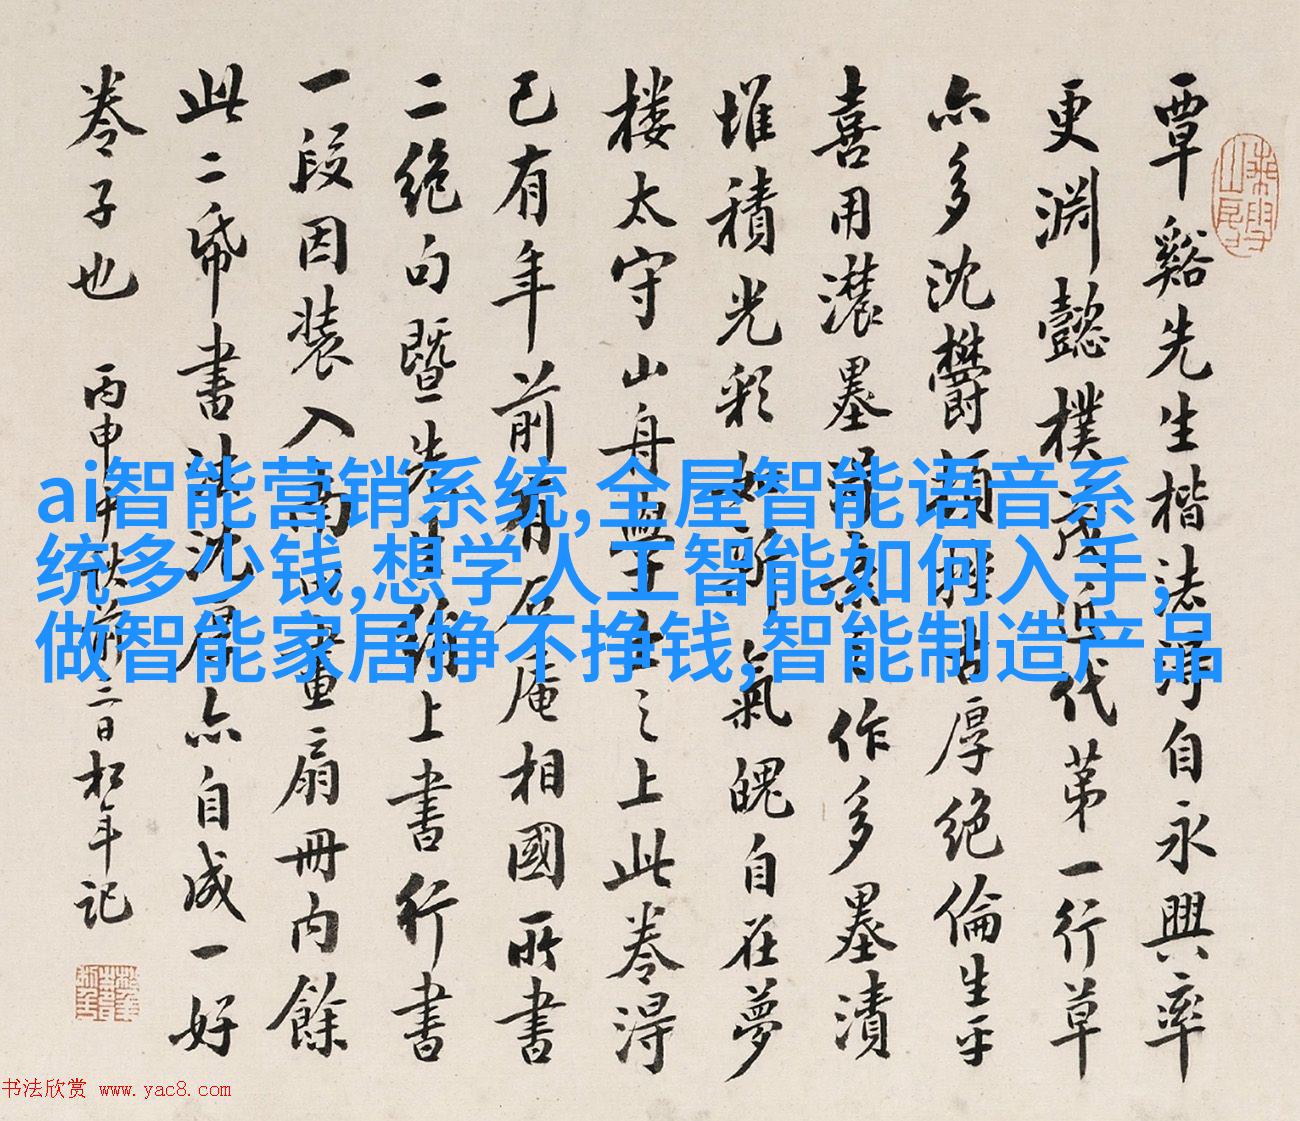 覃谿先生楷法得自永興率
更淵懿樸茂近代第一行草
亦多沈欝頓挫古厚絕倫生平
喜用濃墨
作多墨漬
堆積光彩
氣魄自在夢
樓太守山舟
之上此卷得
已有年前有
庵相國所書
二絕句暨先
上書行書
一段因裝入
畫扇冊內餘
此二帋書
亦自成一好
卷子也
丙申
二日松年記
ai智能营销系统,全屋智能语音系
统多少钱,想学人工智能如何入手,
做智能家居挣不挣钱,智能制造产品
书法欣赏 www.yac8.com